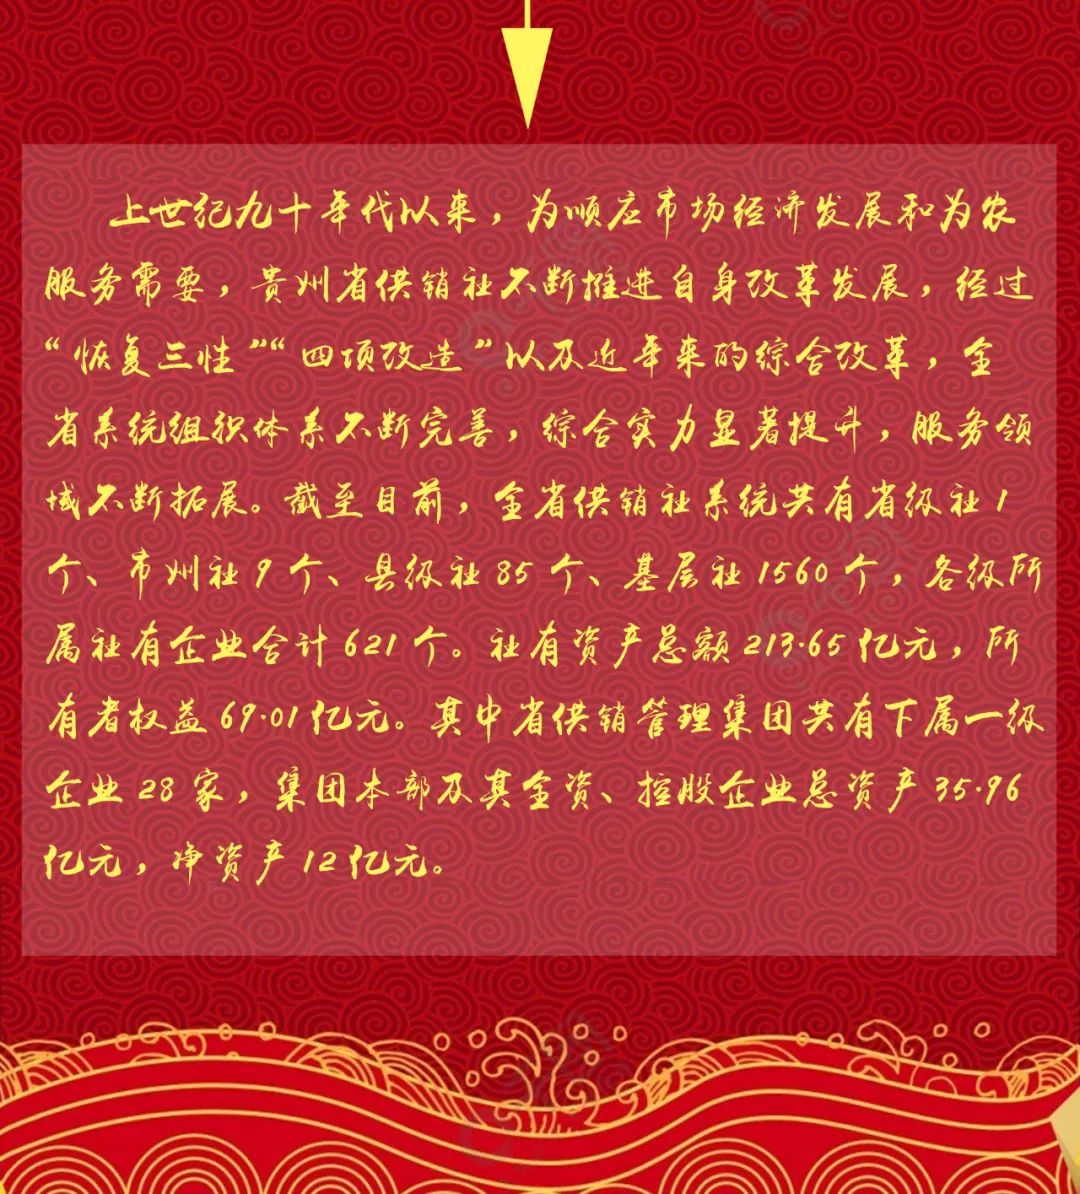 上世纪九十年代以来，为顺应市场经济发展和为农
服务需要，贵州省供销社不断推进自身改革发展，经过
“恢复三性”“四项改造”以及近年来的综合改革，全
省系统组织体系不断完善，综合实力显著提升，服务领
域不断拓展。截至目前，全省供销社系统共有省级社1
个、市州社9个、县级社85个、基层社1560个，各级所
属社有企业合计621个。社有资产总额213.65亿元，所
有者权益69.01亿元。其中省供销管理集团共有下属一级
企业28家，集团本部及其全资、控股企业总资产35.96
亿元，净资产12亿元。